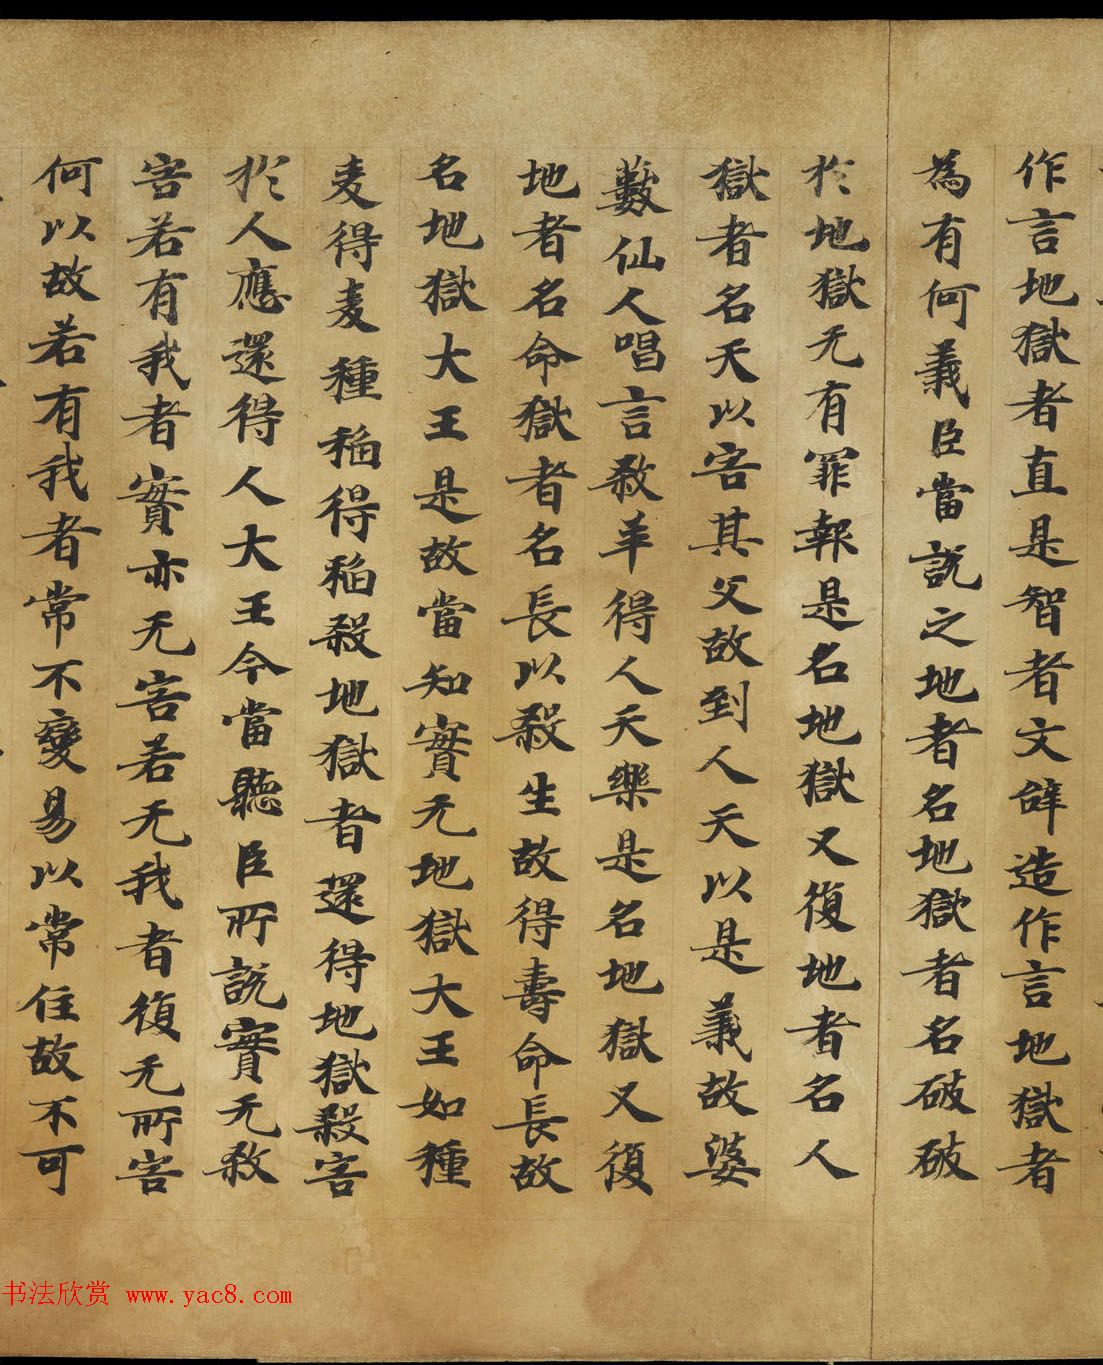 作言地獄者直是智者文辞造作言地獄者
為有何義臣當說之地者名地獄者名破破
於地獄无有罪報是名地獄又復地者名人
獄者名天以害其父故到人天以是義故婆
藪仙人唱言殺羊得人天樂是名地獄又復
地者名命獄者名長以殺生故得壽命長故
名地獄大王是故當知實无地獄大王如種
麦得麦種稻得稻殺地獄者還得地獄殺害
於人應還得人大王今當聽臣所說實无殺
害若有我者實亦无害若无我者復无所害
何以故若有我者常不變易以常住故不可
书法欣赏 www.yac8.com